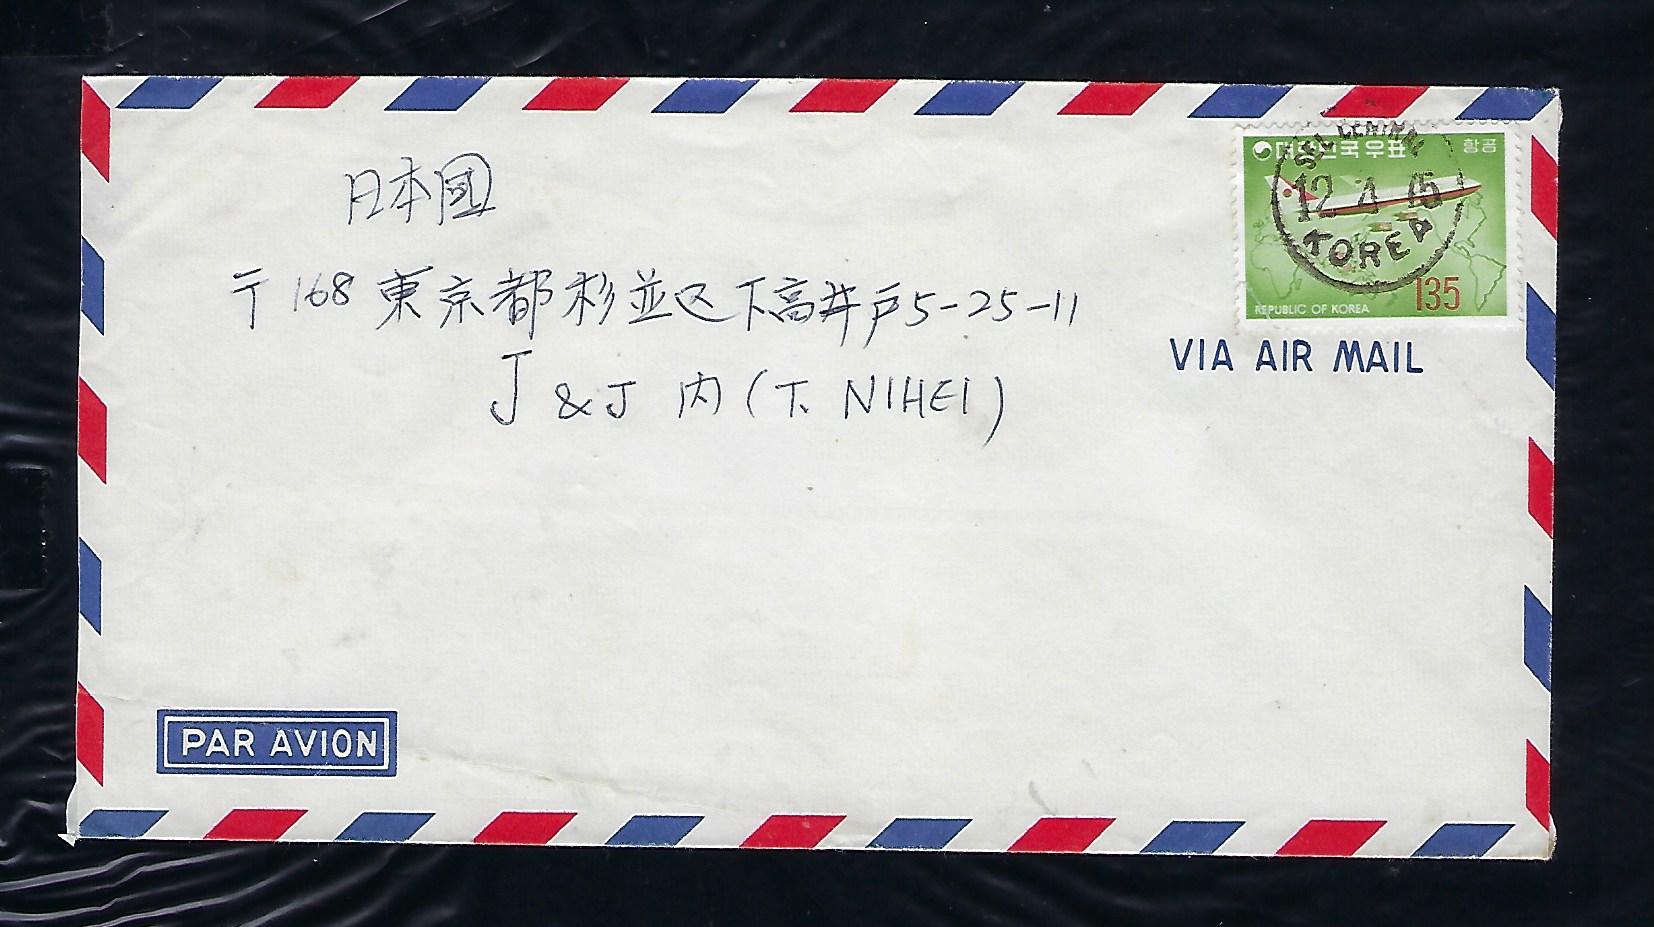 대한민국우표 항공
12 4 75
KOREA
135
REPUBLIC OF KOREA
VIA AIR MAIL
日本國
〒168 東京都杉並区下高井戸5-25-11
J & J 内 (T. NIHEI)
PAR AVION